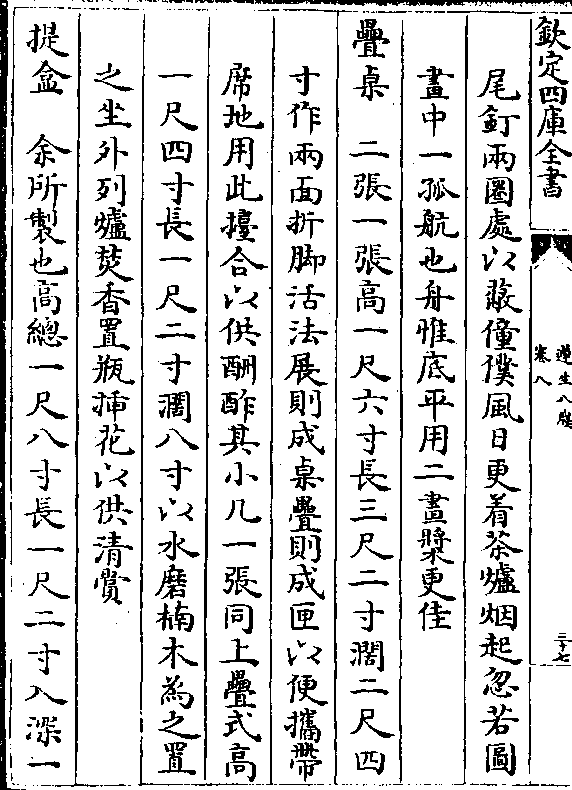 欽定四庫全書
遵生八牋
卷八
三十七
尾釘兩圈處以蔽僮僕風日更着茶爐烟起忽若圖
畫中一孤航也舟惟底平用二畫槳更佳
疊桌　二張一張高一尺六寸長三尺二寸濶二尺四
寸作兩面折脚活法展則成桌疊則成匣以便攜帶
席地用此擡合以供酬酢其小几一張同上疊式高
一尺四寸長一尺二寸濶八寸以水磨楠木為之置
之坐外列爐焚香置瓶揷花以供清賞
提盒　余所製也高總一尺八寸長一尺二寸入深一